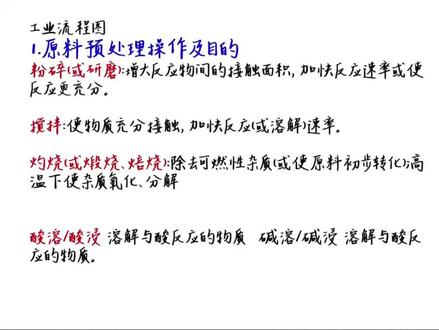 工业流程图
1.原料预处理操作及目的
粉碎(或研磨):增大反应物间的接触面积,加快反应速率或使
反应更充分。
搅拌:使物质充分接触,加快反应(或溶解)速率。
灼烧(或煅烧、焙烧):除去可燃性杂质(或使原料初步转化);高
温下使杂质氧化、分解
酸溶/酸浸 溶解与酸反应的物质 碱溶/碱浸 溶解与酸反
应的物质。